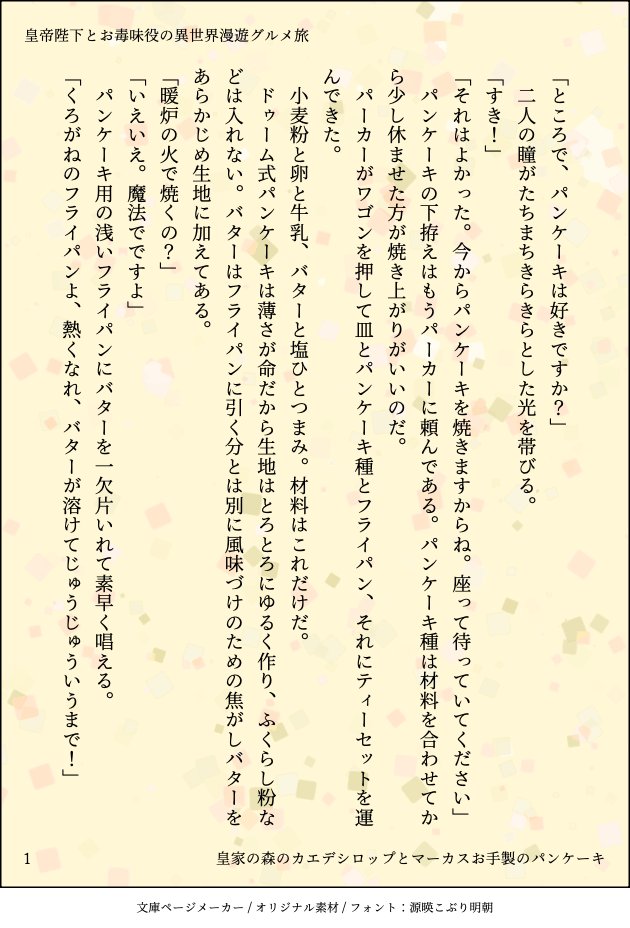 皇帝陛下とお毒味役の異世界漫遊グルメ旅
「ところで、パンケーキは好きですか？」
二人の瞳がたちまちきらきらとした光を帯びる。
「すき！」
「それはよかった。今からパンケーキを焼きますからね。座って待っていてください」
パンケーキの下拵えはもうパーカーに頼んである。パンケーキ種は材料を合わせてか
ら少し休ませた方が焼き上がりがいいのだ。
パーカーがワゴンを押して皿とパンケーキ種とフライパン、それにティーセットを運
んできた。
小麦粉と卵と牛乳、バターと塩ひとつまみ。材料はこれだけだ。
ドゥーム式パンケーキは薄さが命だから生地はとろとろにゆるく作り、ふくらし粉な
どは入れない。バターはフライパンに引く分とは別に風味づけのための焦がしバターを
あらかじめ生地に加えてある。
「暖炉の火で焼くの？」
「いえいえ。魔法でですよ」
パンケーキ用の浅いフライパンにバターを一欠片いれて素早く唱える。
「くろがねのフライパンよ、熱くなれ、バターが溶けてじゅうじゅういうまで！」
1
皇家の森のカエデシロップとマーカスお手製のパンケーキ
文庫ページメーカー / オリジナル素材 / フォント：源暎こぶり明朝